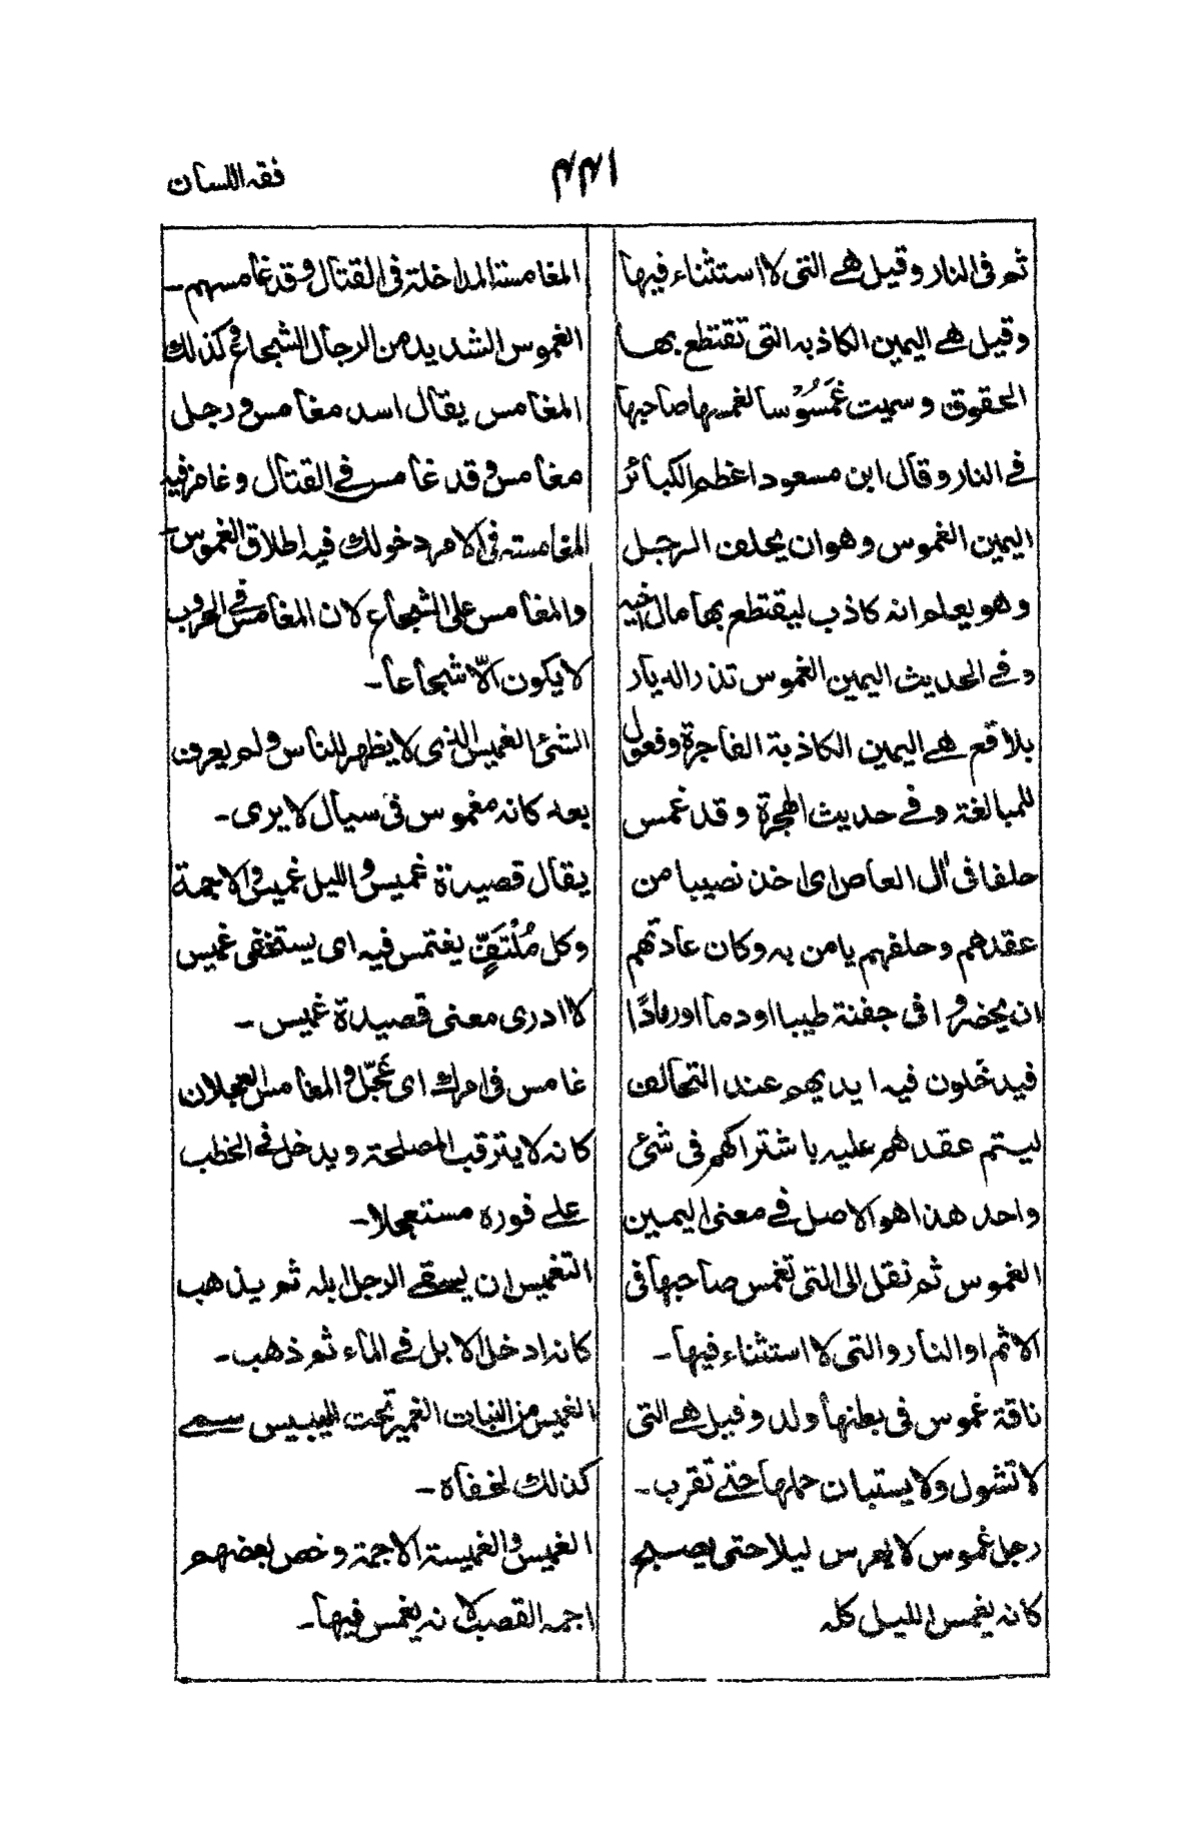 فقه اللسان
ثم فى النار وقيل هے التى لا استثناء فيها
وقيل هے اليمين الكاذبه التى تقتطع بها
الحقوق وسميت غَمُوْسا لغمسها صاحبها
فے النار وقال ابن مسعود اعظم الكبائر
اليمين الغموس وهو ان يحلف الرجل
وهو يعلم انه كاذب ليقتطع بها مال اخيه
وفے الحديث اليمين الغموس تذر الديار
بلاقع هے اليمين الكاذبة الفاجرة وفعول
للمبالغة وفے حديث الهجرة وقد غمس
حلفا فى آل العاص اى اخذ نصيبا من
عقدهم وحلفهم يامن به وكان عادتهم
ان يحضروا فى جفنة طيبا او دما او رمادًا
فيدخلون فيه ايديهم عند التحالف
ليتم عقدهم عليه باشتراكهم فى شئ
واحد هذا هو الاصل فے معنى اليمين
الغموس ثم نقل الى التى تغمس صاحبها فى
الاثم او النار والتى لا استثناء فيها۔
ناقة غموس فى بطنها ولد وقيل هے التى
لا تشول ولا يستبان حملها حتے تقرب۔
رجل غموس لا يعرس ليلا حتى يصبح
كانه يغمس الليل كله
المغامسة المداخلة فى القتال وقد غامسهم۔
الغموس الشديد من الرجال الشجاع وكذلك
المغامس يقال اسد مغامس ورجل
مغامس وقد غامس فے القتال وغامز فيه
المغامسته فى الامر دخولك فيه اطلاق الغموس
والمغامس على الشجاع لان المغامس فے الحروب
لا يكون الّا شجاعا۔
الشئ الغميس الذى لا يظهر للناس ولم يعرف
بعد كانه مغموس فى سيال لا يرى۔
يقال قصيدة غميس والليل غميس والاجمة
وكل مُلْتَفٍّ يغتمس فيه اى يستخفى غميس
لا ادرى معنى قصيدة غميس۔
غامس فى امرك اى عَجِّل والمغامس العجلان
كانه لا يترقب المصلحة ويدخل فے الخطب
علے فوره مستعجلا۔
التغميس ان يسقے الرجل ابله ثم يذهب
كانه ادخل الابل فے الماء ثم ذهب۔
الغميس من النبات الغمير تحت اليبيس سمے
كذلك لخفاه۔
الغميس والغميسة الاجمة وخص بعضهم
اجمه القصب لانه يغمس فيها۔